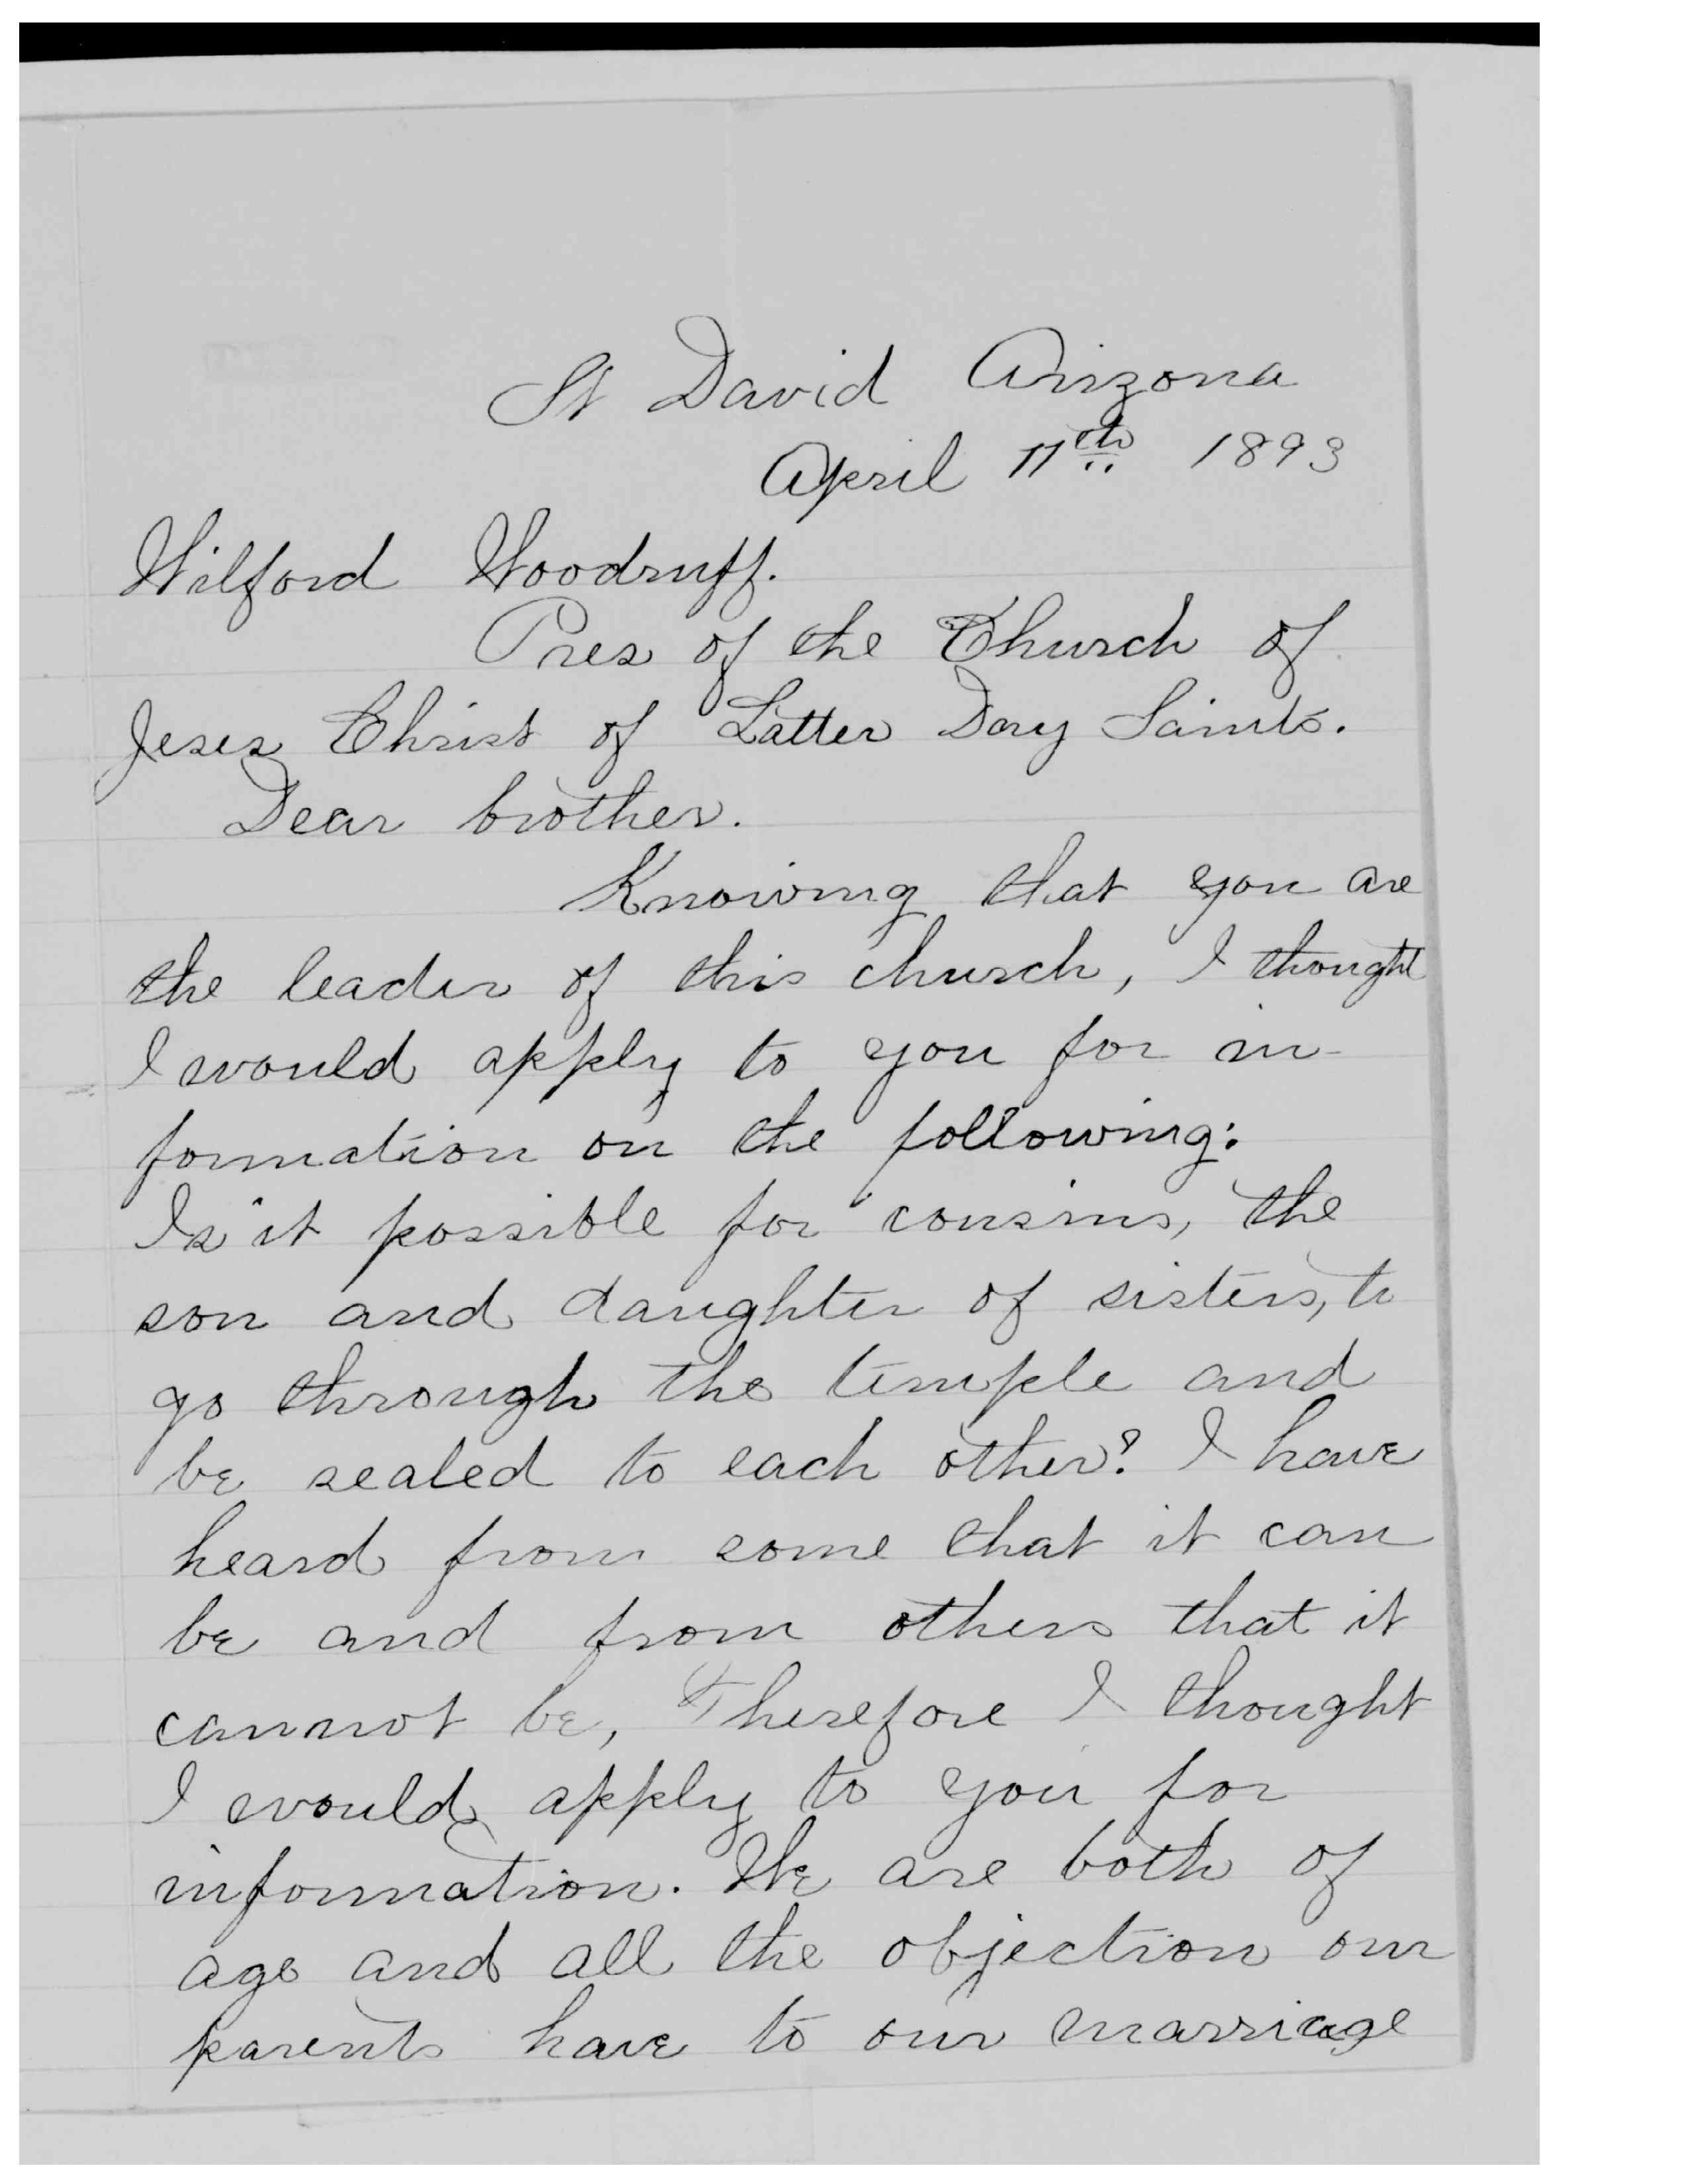 St David Arizona
April 11th 1893
Wilford Woodruff.
Pres of the Church of
Jeses Christ of Latter Day Saints.
Dear brother.
Knowing that you are
the leader of this church, I thought
I would apply to you for in-
formation on the following:
Is it possible for cousins, the
son and daughter of sisters, to
go through the temple and
be sealed to each other? I have
heard from some that it can
be and from others that it
cannot be, Therefore I thought
I would apply to you for
information. We are both of
age and all the objection our
parents have to our marriage